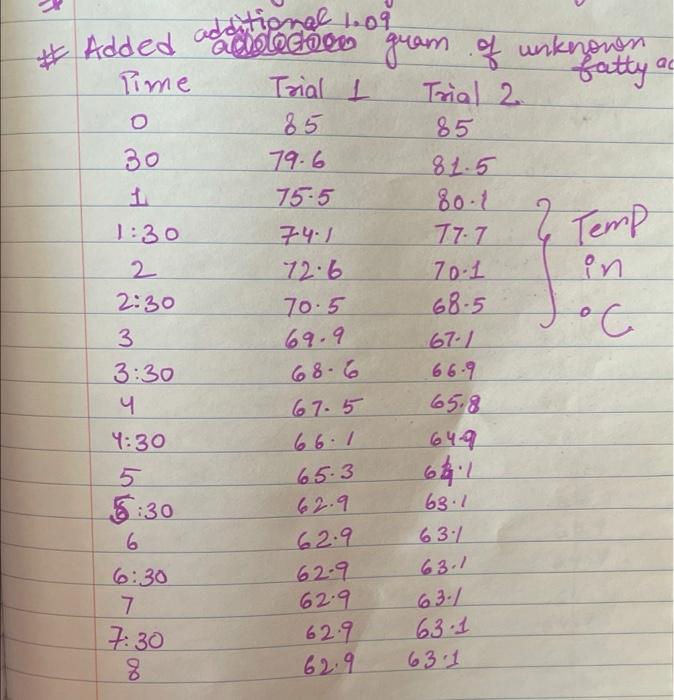 # Added additional 1.09 gram of unknown
fatty ac
Time Trial 1 Trial 2
0 85 85
30 79.6 81.5
1 75.5 80.1
1:30 74.1 77.7
2 72.6 70.1
2:30 70.5 68.5
3 69.9 67.1
3:30 68.6 66.9
4 67.5 65.8
4:30 66.1 64.9
5 65.3 64.1
5:30 62.9 63.1
6 62.9 63.1
6:30 62.9 63.1
7 62.9 63.1
7:30 62.9 63.1
8 62.9 63.1
Temp
in
°C